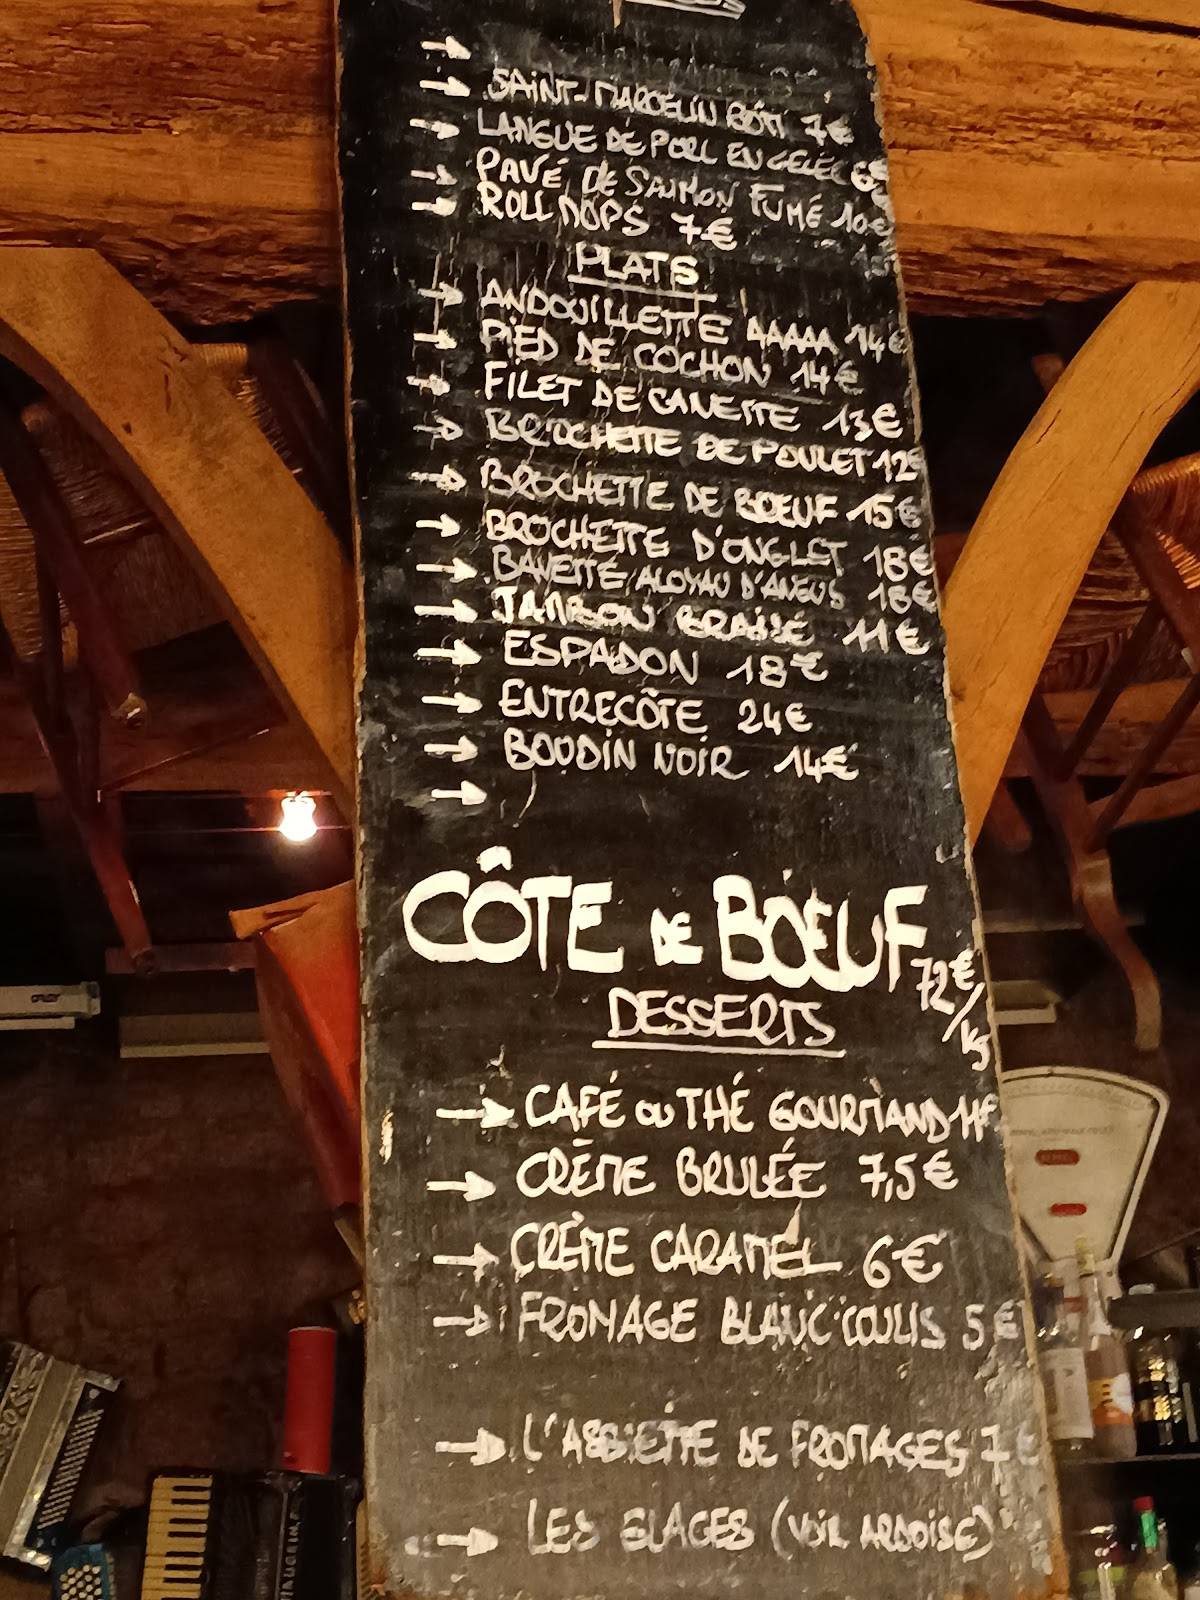 SAINT-MARCELIN RÔTI 7€
LANGUE DE PORC EN GELÉE 6€
PAVÉ DE SAUMON FUMÉ 10€
ROLLMOPS 7€
PLATS
ANDOUILLETTE AAAAA 14€
PIED DE COCHON 14€
FILET DE CANETTE 13€
BROCHETTE DE POULET 12€
BROCHETTE DE BOEUF 15€
BROCHETTE D'ONGLET 18€
BAVETTE ALOYAU D'ANGUS 18€
JAMBON BRAISÉ 11€
ESPADON 18€
ENTRECÔTE 24€
BOUDIN NOIR 14€
CÔTE DE BOEUF 72€/KG
DESSERTS
CAFÉ OU THÉ GOURMAND 11€
CRÈME BRULÉE 7,5€
CRÈME CARAMEL 6€
FROMAGE BLANC COULIS 5€
L'ASSIETTE DE FROMAGES 7€
LES GLACES (VOIR ARDOISE)